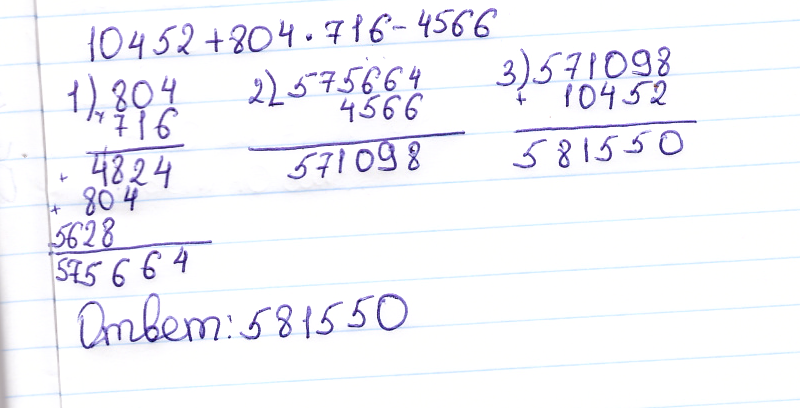 10452+804·716-4566
1) 804 2) 575664 3) 571098
× 716 - 4566 + 10452
4824 571098 581550
+ 804
+ 5628
575664
Ответ: 581550